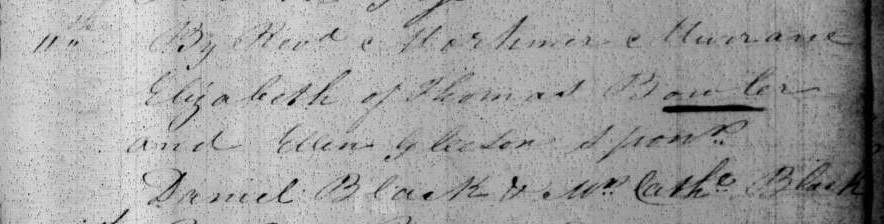 11th By Revd Mortimer Murrane
Elizabeth of Thomas Bowler
and Ellen Gleeson Sponrs
Daniel Black & Mrs Cathe Black